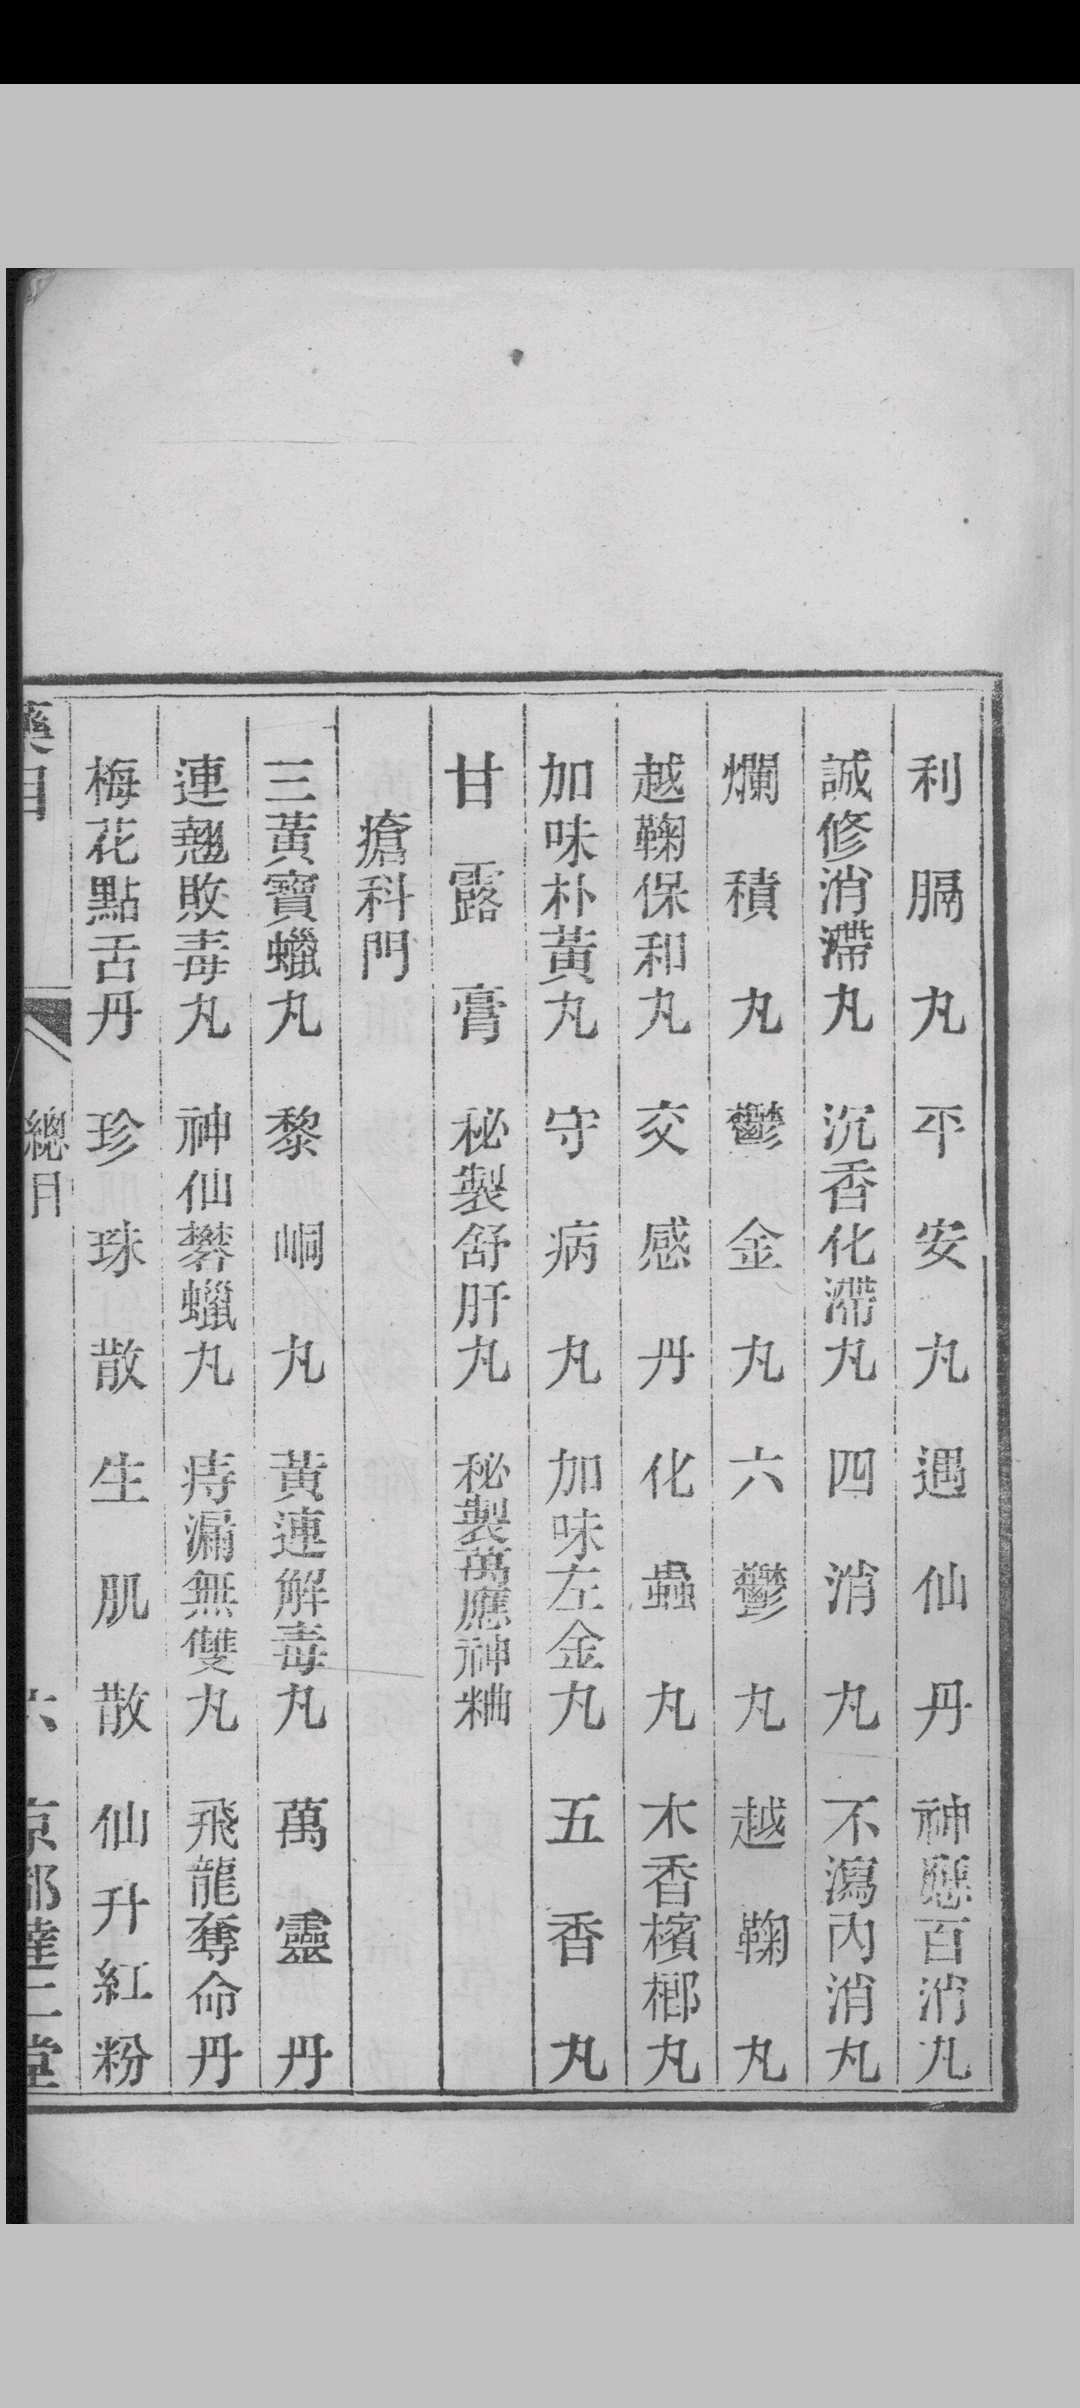 利膈丸　平安丸　遇仙丹　神應百消丸
誠修消滯丸　沉香化滯丸　四消丸　不瀉內消丸
爛積丸　鬱金丸　六鬱丸　越鞠丸
越鞠保和丸　交感丹　化蟲丸　木香檳榔丸
加味朴黃丸　守病丸　加味左金丸　五香丸
甘露膏　秘製舒肝丸　秘製萬應神糆
瘡科門
三黃寶蠟丸　黎峒丸　黃連解毒丸　萬靈丹
連翹敗毒丸　神仙礬蠟丸　痔漏無雙丸　飛龍奪命丹
梅花點舌丹　珍珠散　生肌散　仙升紅粉
藥目　總目　六　京都達仁堂